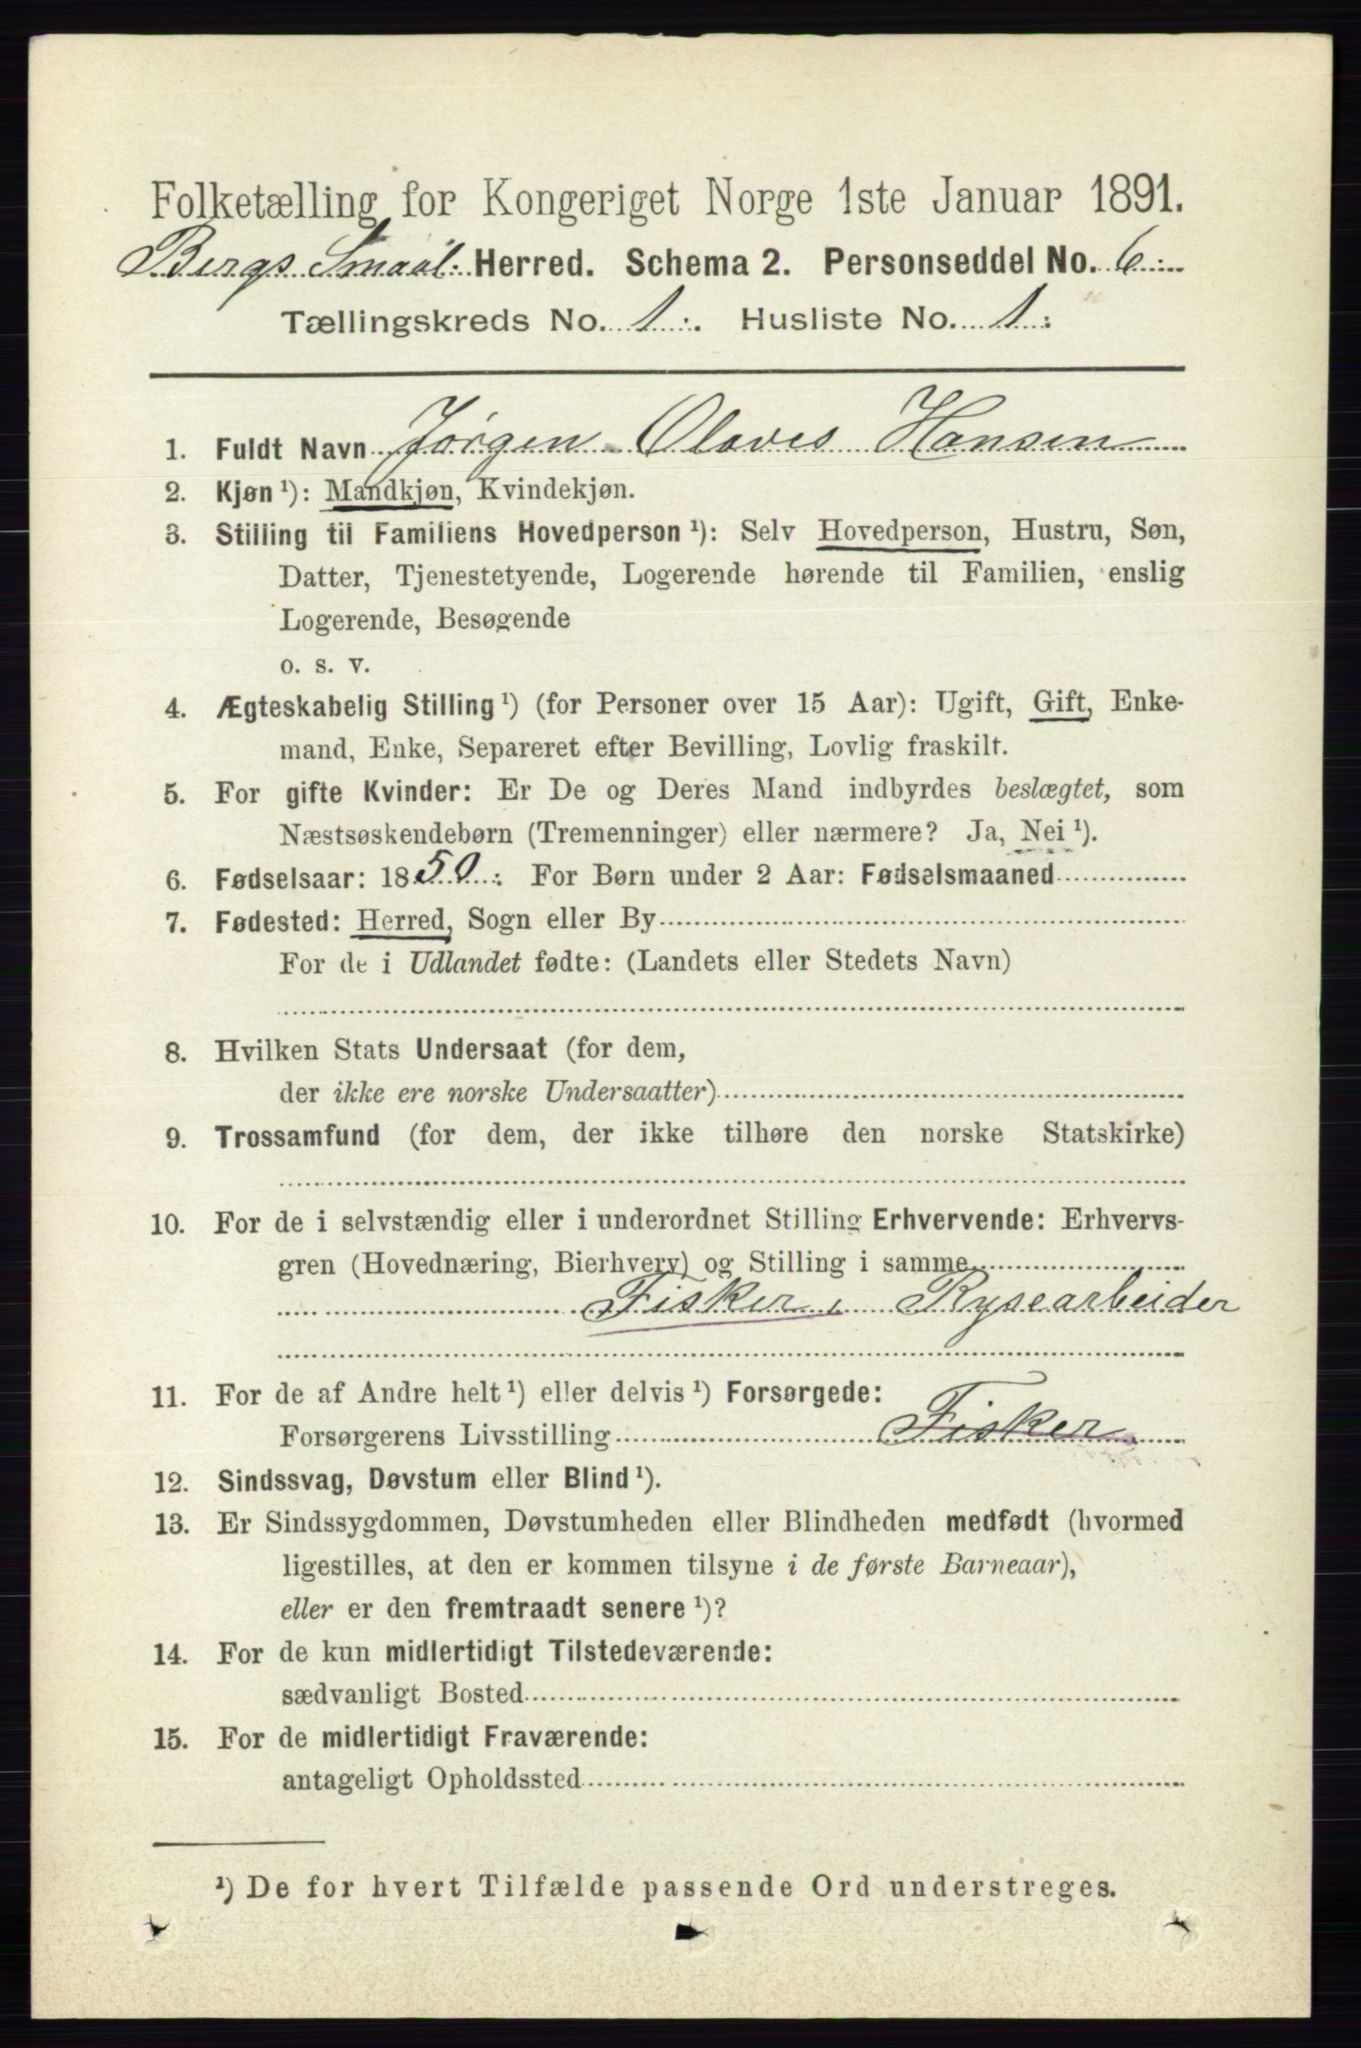 Folketælling for Kongeriget Norge 1ste Januar 1891.
Bergs Smaal: Herred. Schema 2. Personseddel No. 6
Tællingskreds No. 1. Husliste No. 1
1. Fuldt Navn Jørgen Olaves Hansen
2. Kjøn¹): Mandkjøn, Kvindekjøn.
3. Stilling til Familiens Hovedperson¹): Selv Hovedperson, Hustru, Søn,
Datter, Tjenestetyende, Logerende hørende til Familien, enslig
Logerende, Besøgende
o. s. v.
4. Ægteskabelig Stilling¹) (for Personer over 15 Aar): Ugift, Gift, Enke-
mand, Enke, Separeret efter Bevilling, Lovlig fraskilt.
5. For gifte Kvinder: Er De og Deres Mand indbyrdes beslægtet, som
Næstsøskendebørn (Tremenninger) eller nærmere? Ja, Nei¹).
6. Fødselsaar: 1850. For Børn under 2 Aar: Fødselsmaaned
7. Fødested: Herred, Sogn eller By
For de i Udlandet fødte: (Landets eller Stedets Navn)
8. Hvilken Stats Undersaat (for dem,
der ikke ere norske Undersaatter)
9. Trossamfund (for dem, der ikke tilhøre den norske Statskirke)
10. For de i selvstændig eller i underordnet Stilling Erhvervende: Erhvervs-
gren (Hovednæring, Bierhverv) og Stilling i samme
Fisker, Rysearbeider
11. For de af Andre helt¹) eller delvis¹) Forsørgede:
Forsørgerens Livsstilling Fisker
12. Sindssvag, Døvstum eller Blind¹).
13. Er Sindssygdommen, Døvstumheden eller Blindheden medfødt (hvormed
ligestilles, at den er kommen tilsyne i de første Barneaar),
eller er den fremtraadt senere¹)?
14. For de kun midlertidigt Tilstedeværende:
sædvanligt Bosted
15. For de midlertidigt Fraværende:
antageligt Opholdssted
¹) De for hvert Tilfælde passende Ord understreges.